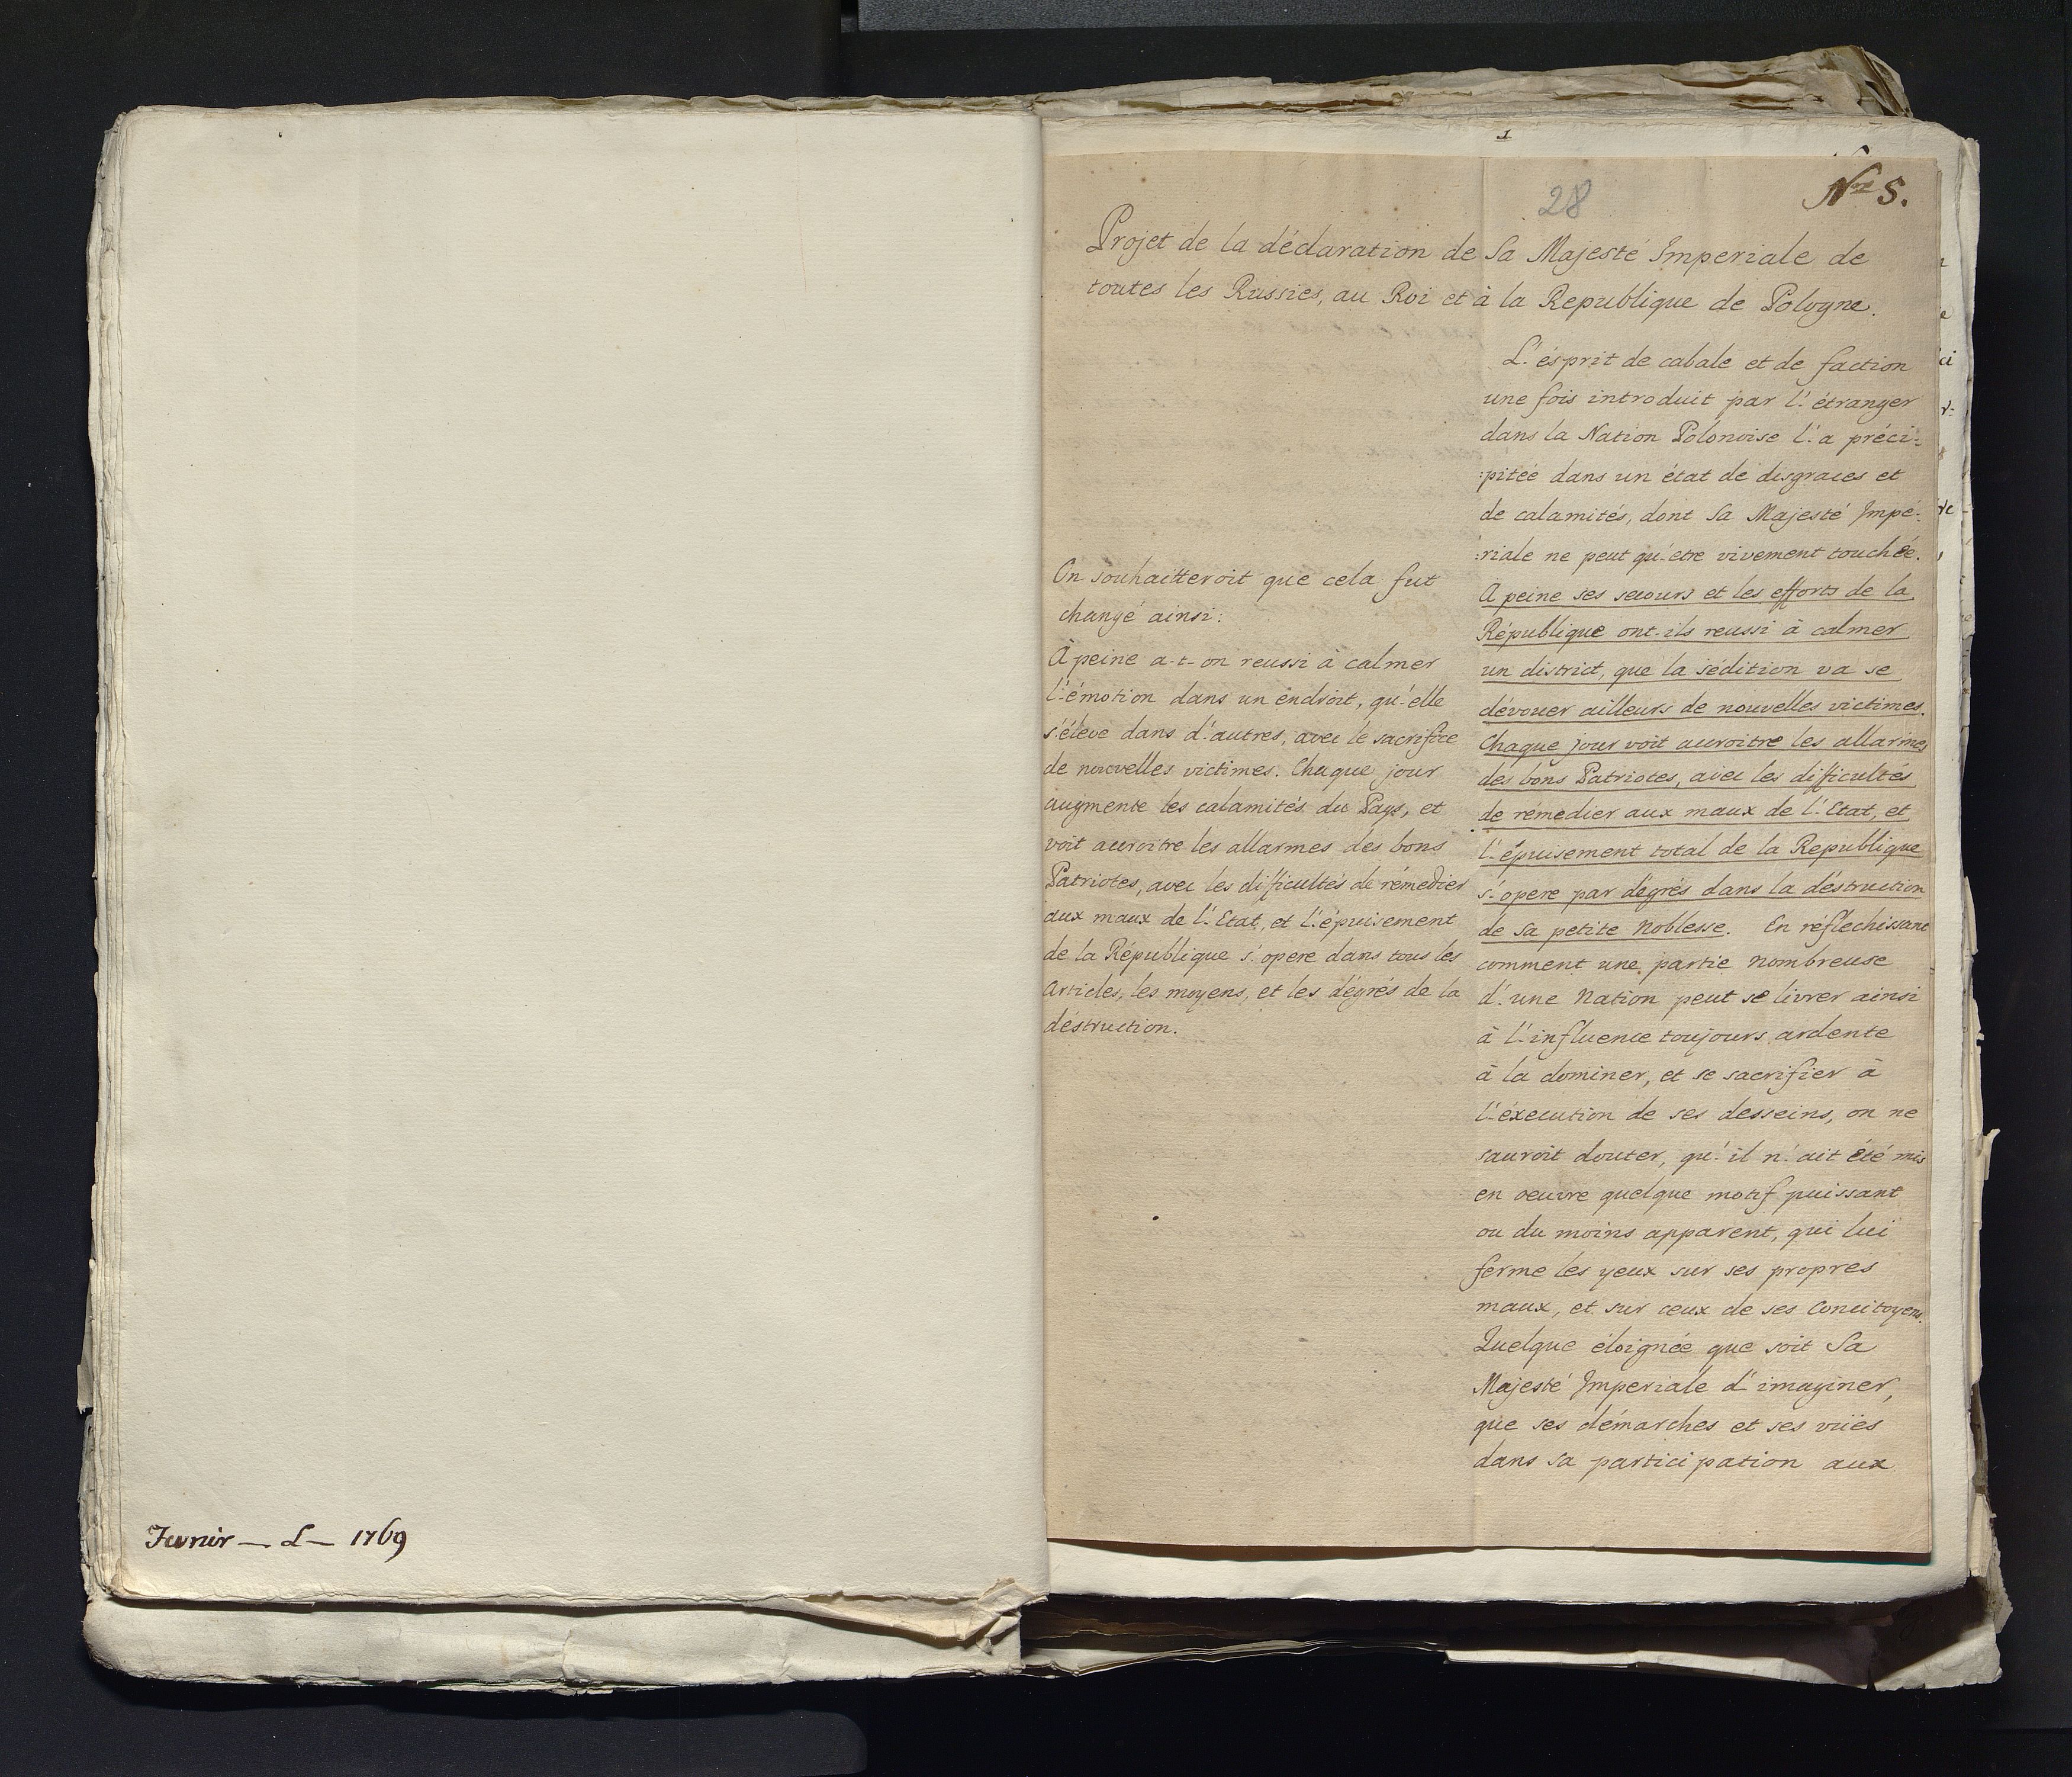 Fevrier — L — 1769
1
28
Nro 5.
Projet de la déclaration de Sa Majesté Imperiale de
toutes les Russies, au Roi et à la Republique de Pologne.
On souhaitteroit que cela fut
changé ainsi:
À peine a-t-on reussi à calmer
l'émotion dans un endroit, qu'elle
s'éleve dans d'autres, avec le sacrifice
de nouvelles victimes. Chaque jour
augmente les calamités du Pays, et
voit accroitre les allarmes des bons
Patriotes, avec les difficultés de rémedier
aux maux de l'Etat, et l'épuisement
de la République s'opere dans tous les
Articles, les moyens, et les dégrés de la
déstruction.
L'ésprit de cabale et de faction
une fois introduit par l'étranger
dans la Nation Polonoise l'a préci-
:pitée dans un état de disgraces et
de calamités, dont Sa Majesté Impé-
:riale ne peut qu'etre vivement touchée.
A peine ses secours et les efforts de la
République ont-ils reussi à calmer
un district, que la sédition va se
dévouer ailleurs de nouvelles victimes.
Chaque jour voit accroitre les allarmes
des bons Patriotes, avec les difficultés
de rémedier aux maux de l'Etat, et
l'épuisement total de la Republique
s'opere par dégrés dans la déstruction
de sa petite Noblesse. En réflechissant
comment une partie nombreuse
d'une Nation peut se livrer ainsi
à l'influence toujours ardente
à la dominer, et se sacrifier à
l'éxecution de ses desseins, on ne
sauroit douter, qu'il n'ait été mis
en oeuvre quelque motif puissant
ou du moins apparent, qui lui
ferme les yeux sur ses propres
maux, et sur ceux de ses Concitoyens.
Quelque éloignée que soit Sa
Majesté Imperiale d'imaginer,
que ses démarches et ses vües
dans sa participation aux